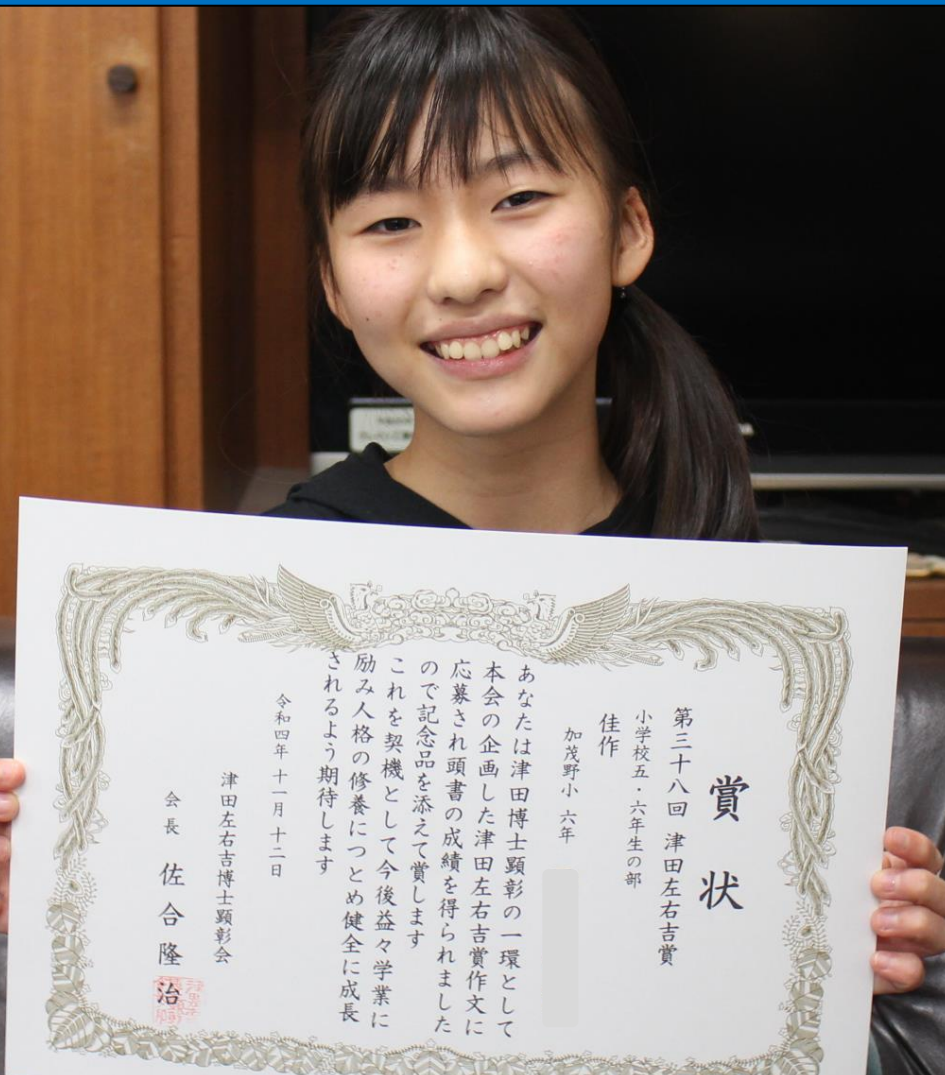 賞状
第三十八回 津田左右吉賞
小学校五・六年生の部
佳作
加茂野小 六年
あなたは津田博士顕彰の一環として
本会の企画した津田左右吉賞作文に
応募され頭書の成績を得られました
ので記念品を添えて賞します
これを契機として今後益々学業に
励み人格の修養につとめ健全に成長
されるよう期待します
令和四年 十一月 十二日
津田左右吉博士顕彰会
会長 佐合隆治